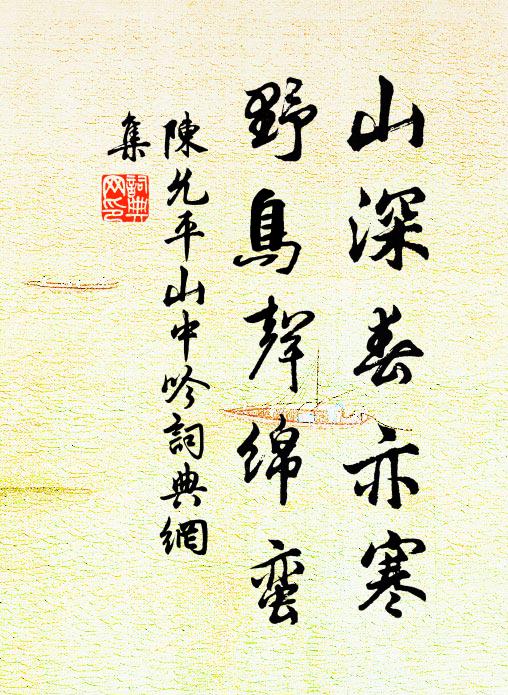 山深春亦寒
野鳥聲綿蛮
陳允平山中吟詞典網
集
詞典
网印